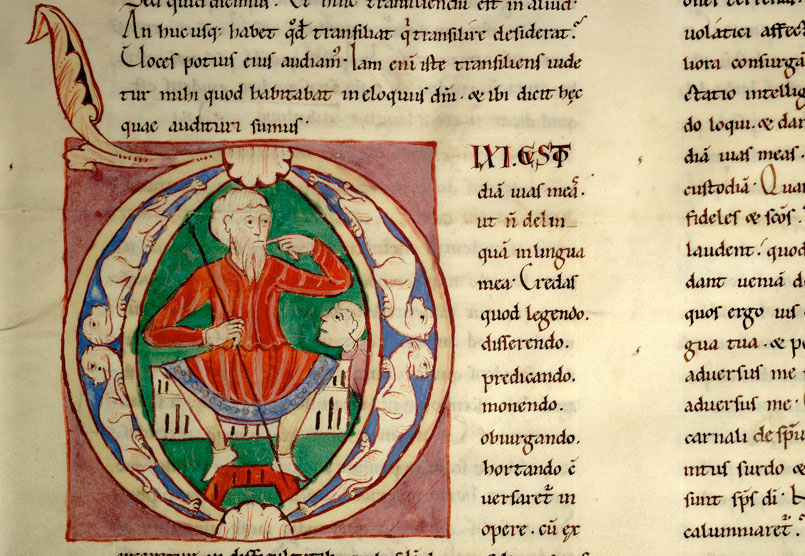 An hucusq; habet qđ transiliat q̄ transilire desiderat.
Voces potius eius audiam᾽. Iam eni iste transiliens uide
tur mihi quod habitabat in eloquiis dñi. & ibi dicit hęc
quae audituri sumus.
IXI. CUST
diā uias meā.
ut ñ delin
quā in lingua
mea. Credas
quod legendo.
disserendo.
predicando.
monendo.
obiurgando.
hortando ē
uersaret in
opere. cū ex
uolatici affect
liora consurgā
ctatio intellig
do loqui. & dar
diā uias meas.
custodiā. Qua
fideles & scōs.
laudent. quod
dant ueniā d
quos ergo uis
gua tua. & p
aduersus me
aduersus me.
carnali de spū
intus surdo &
sunt sps di.
calumniaret.